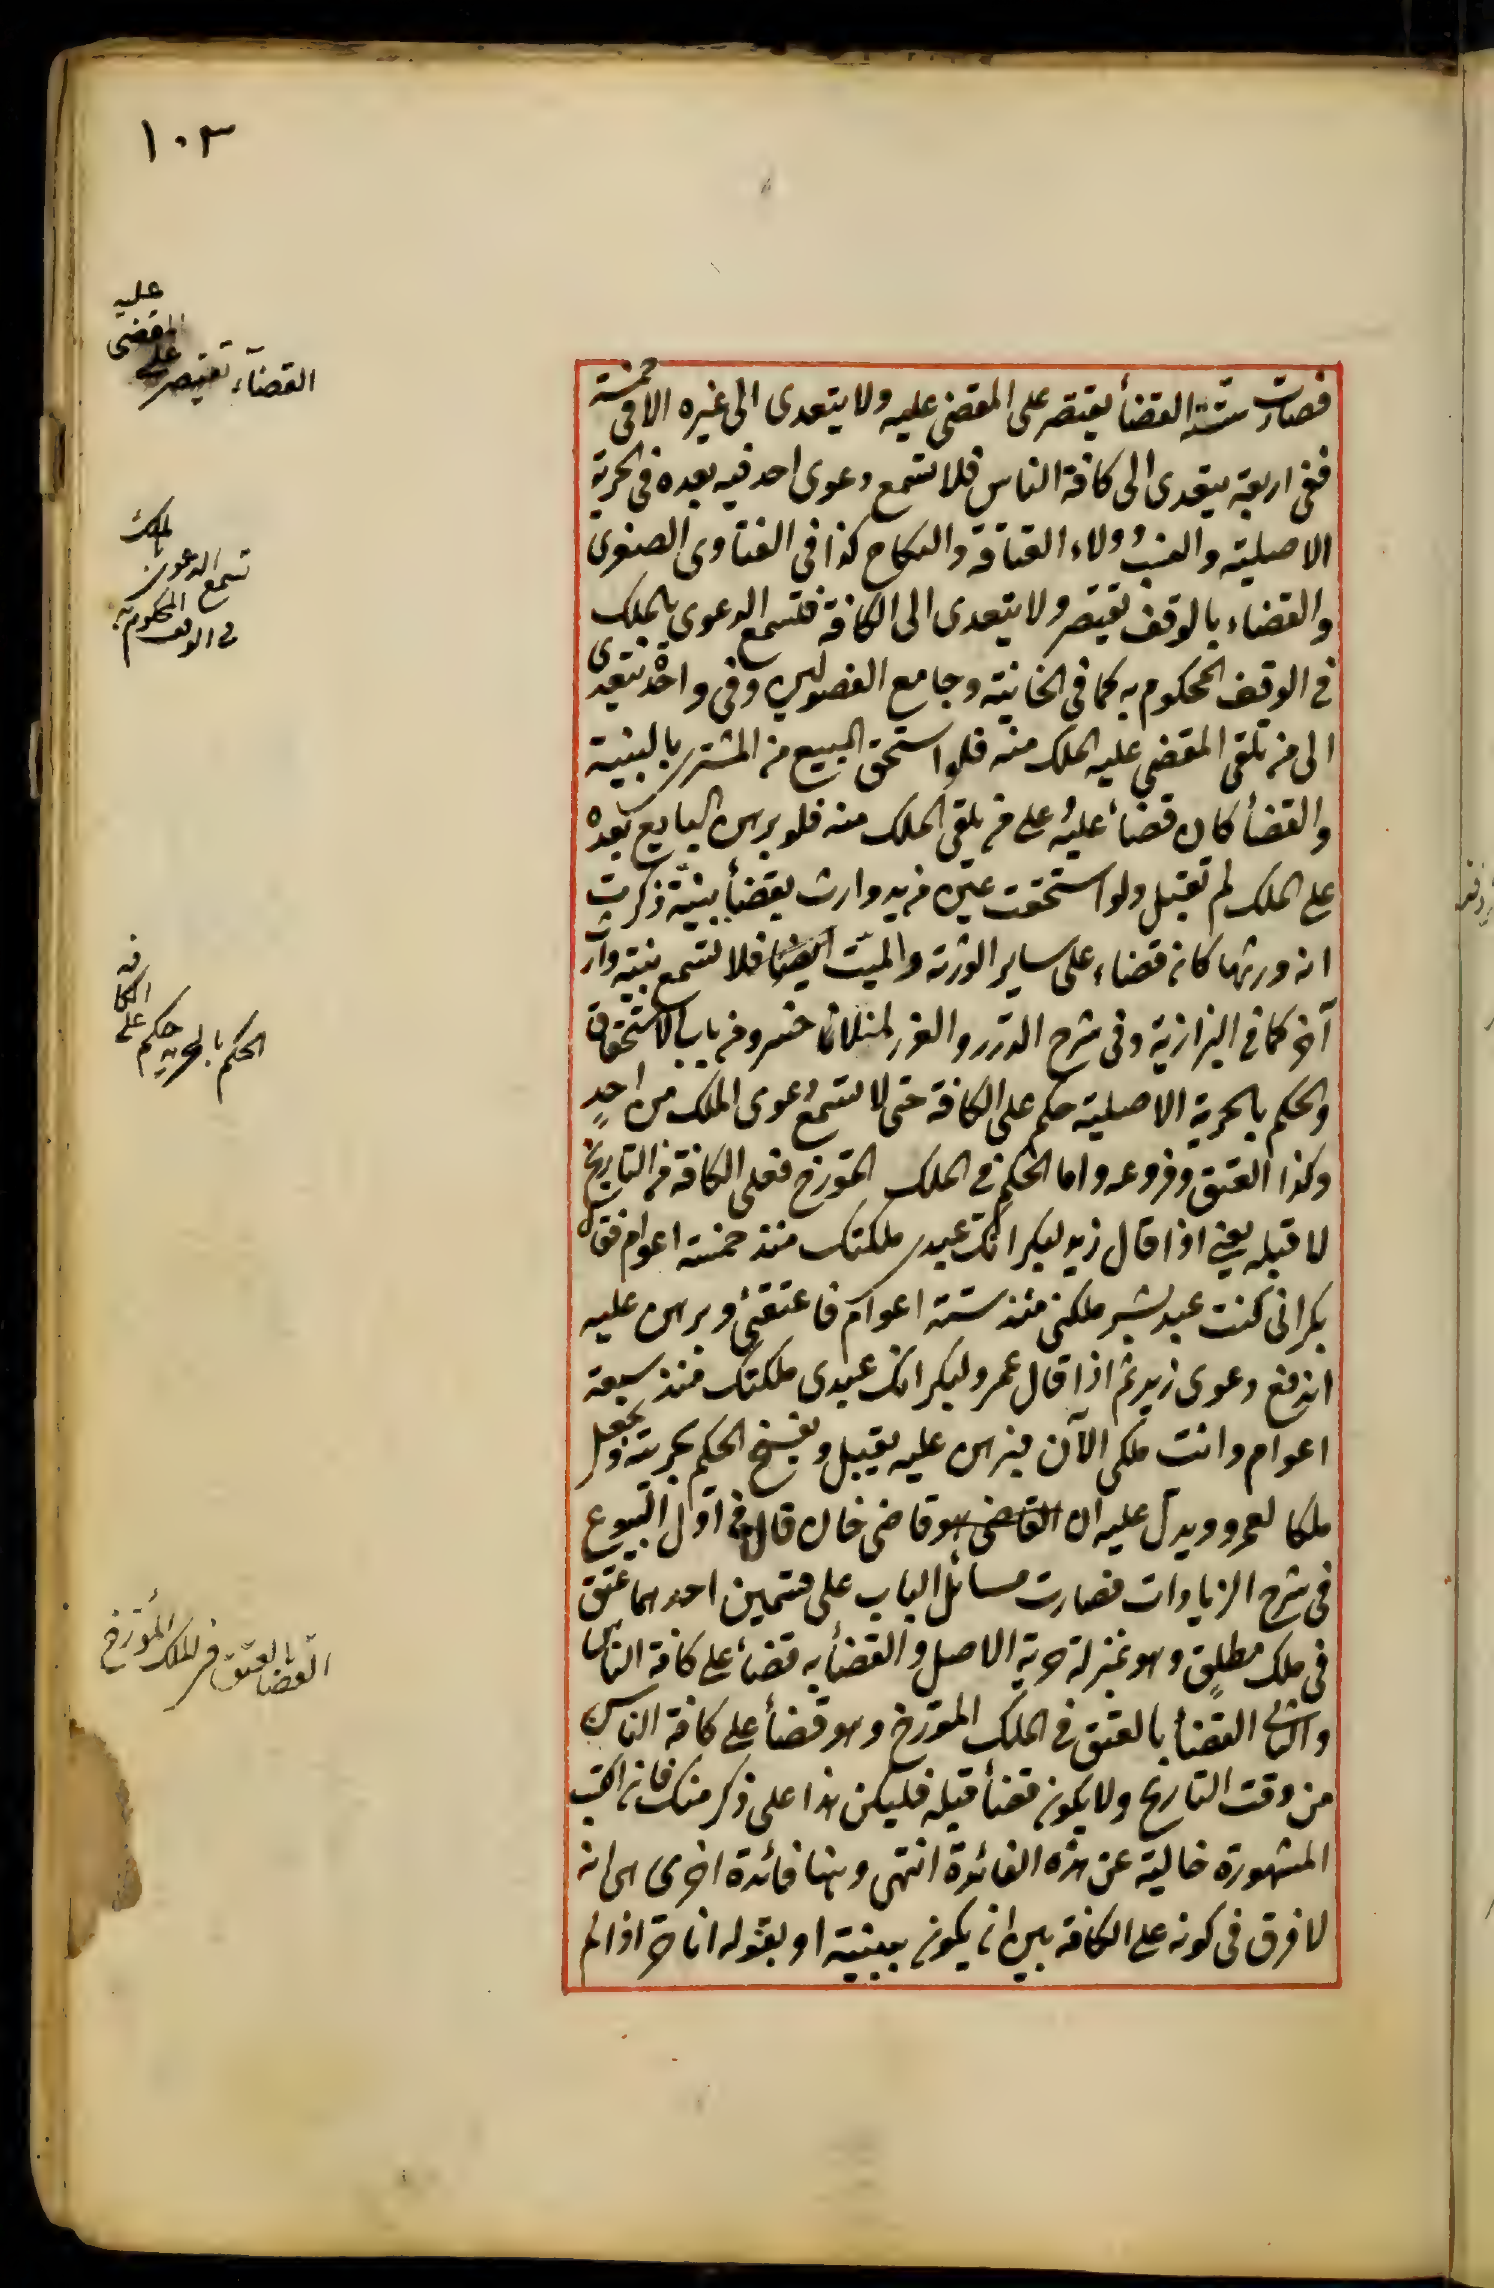 ١٠٣
القضآء يقتصر على
المقضى
عليه
فصارت ستة القضأ يقتصر على المقضى عليه ولا يتعدى الى غيره الا فى خمسة
ففى اربعة يتعدى الى كافة الناس فلا تسمع دعوى احد فيه بعده فى الحرية
الاصلية والنسب وولاء العتاقة والنكاح كذا فى الفتاوى الصغرى
والقضاء بالوقف يقتصر ولا يتعدى الى الكافة فتسمع الدعوى بالملك
فى الوقف المحكوم به كما فى الخانية وجامع الفصولين وفى واحد يتعدى
الى من تلقى المقضى عليه الملك منه فلو استحق المبيع من المشترى بالبينة
والقضأ كان قضأ عليه على من تلقى الملك منه فلو برهن البايع بعده
على الملك لم تقبل ولو استحقت عين من يد وارث بقضأ ببينة ذكرت
انه ورثها كان قضاء على ساير الورثة والميت ايضا فلا تسمع بينة وارث
آخر كما فى البزازية وفى شرح الدرر والغرر لمنلا خسرو من باب الاستحقاق
والحكم بالحرية الاصلية حكم على الكافة حتى لا تسمع دعوى الملك من احد
وكذا العتق وفروعه واما الحكم فى الملك المؤرخ فعلى الكافة من التاريخ
لا قبله يعنى اذا قال زيد لبكر انك عبدى ملكتك منذ خمسة اعوام فقال
بكر انى كنت عبد بشر ملكنى منذ ستة اعوام فاعتقنى وبرهن عليه
اندفع دعوى زيد ثم اذا قال عمرو لبكر انك عبدى ملكتك منذ سبعة
اعوام وانت ملكى الآن فبرهن عليه يقبل ويفسخ الحكم بحريته ويجعل
ملكا لعمرو ويدل عليه ان قاضى خان قال فى اول البيوع
فى شرح الزيادات فصارت مسائل الباب على قسمين احدهما عتق
فى ملك مطلق وهو بمنزلة حرية الاصل والقضأ به قضأ على كافة الناس
والثانى القضأ بالعتق فى الملك المؤرخ وهو قضأ على كافة الناس
من وقت التاريخ ولا يكون قضأ قبله فليكن هذا على ذكر منك فان الكتب
المشهورة خالية عن هذه الفائدة انتهى وهنا فائدة اخرى هى انه
لا فرق فى كونه على الكافة بين ان يكون ببينة او بقوله انا حر اذا لم
تسمع الدعوى بالملك
فى الوقف المحكوم به
الحكم بالحرية حكم على
الكافة
القضا بالعتق فى الملك المؤرخ